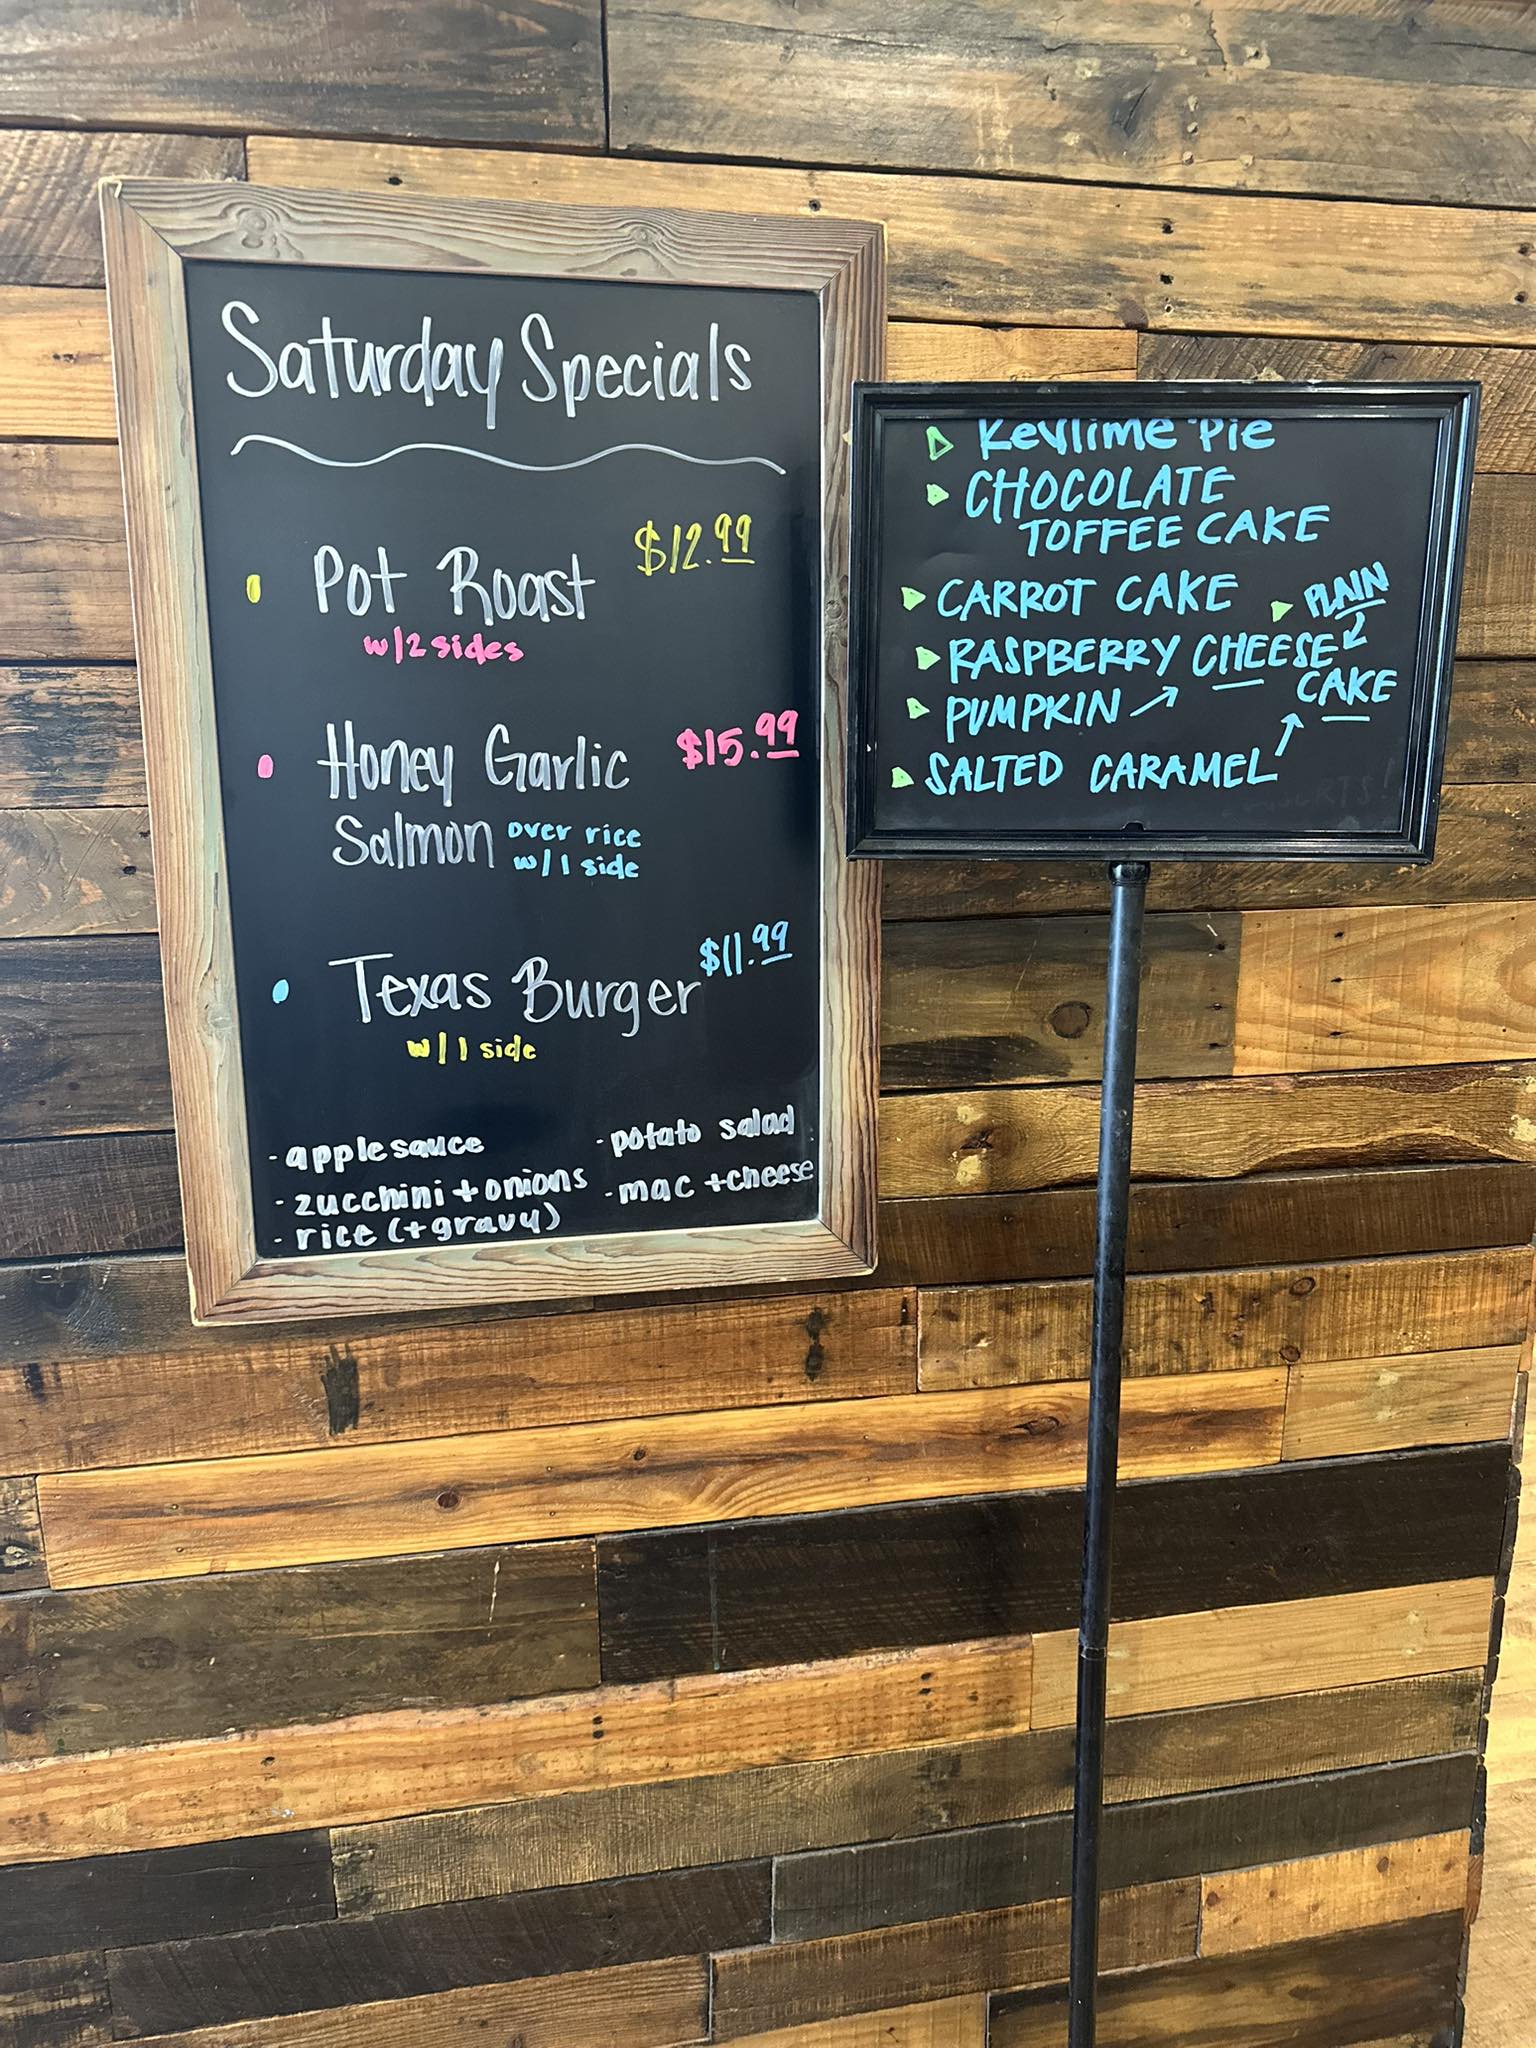 Saturday Specials
Pot Roast $12.99
w/2 sides
Honey Garlic $15.99
Salmon over rice
w/1 side
Texas Burger $11.99
w/1 side
- applesauce
- zucchini + onions
- rice (+gravy)
- potato salad
- mac + cheese
Keylime Pie
CHOCOLATE
TOFFEE CAKE
CARROT CAKE
PLAIN
RASPBERRY CHEESE
CAKE
PUMPKIN
SALTED CARAMEL